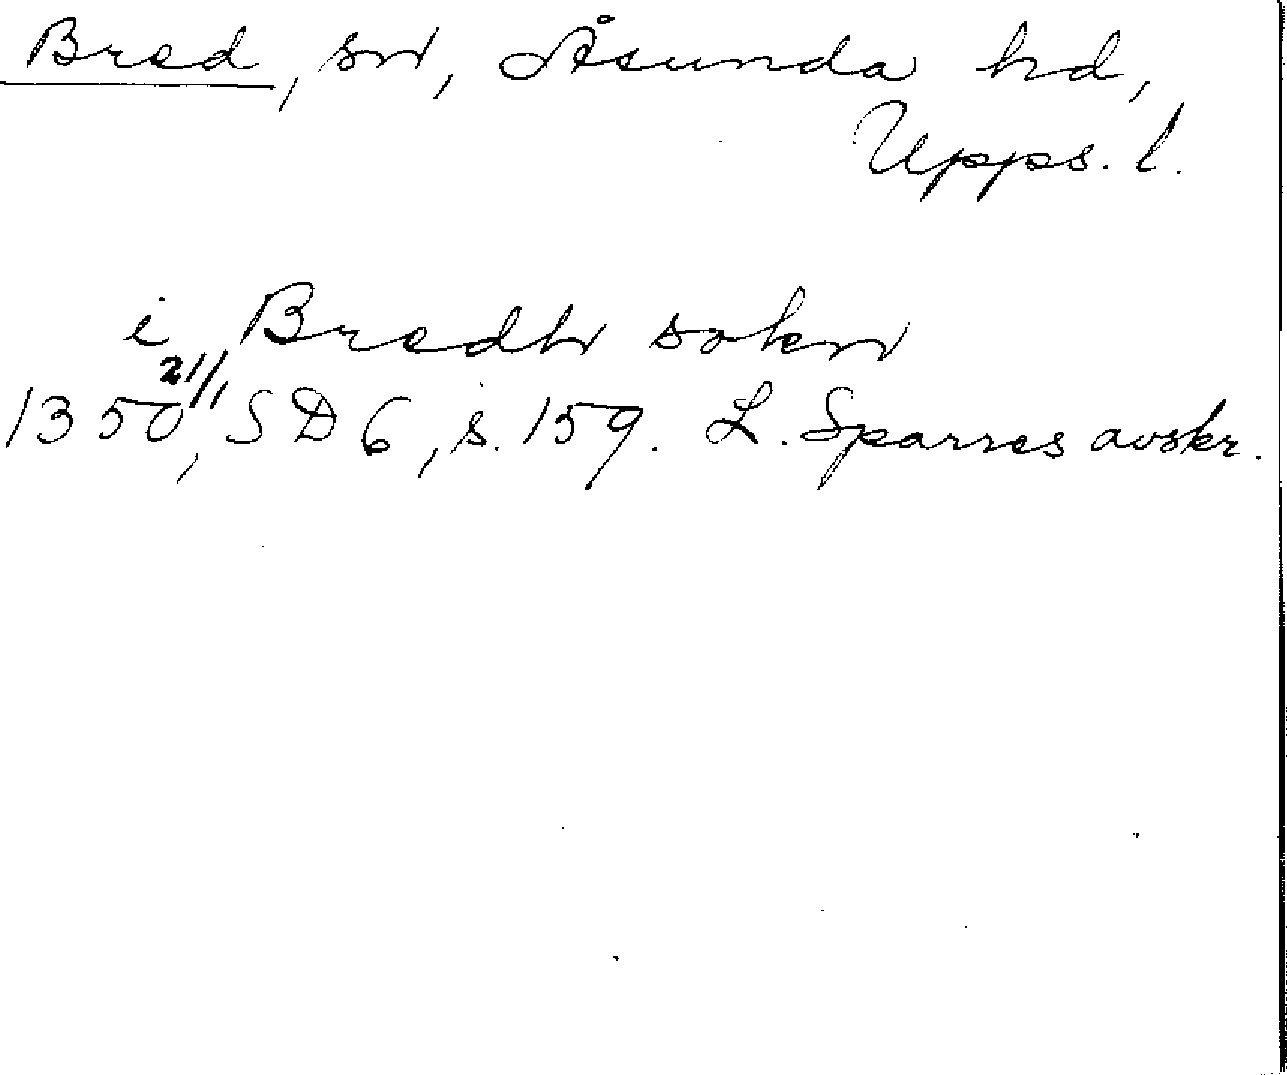 Bred, sn, Åsunda hd,
Upps. l.
i Bredh sokn
1350 21/1, SD 6, s. 159. L. Sparres avskr.